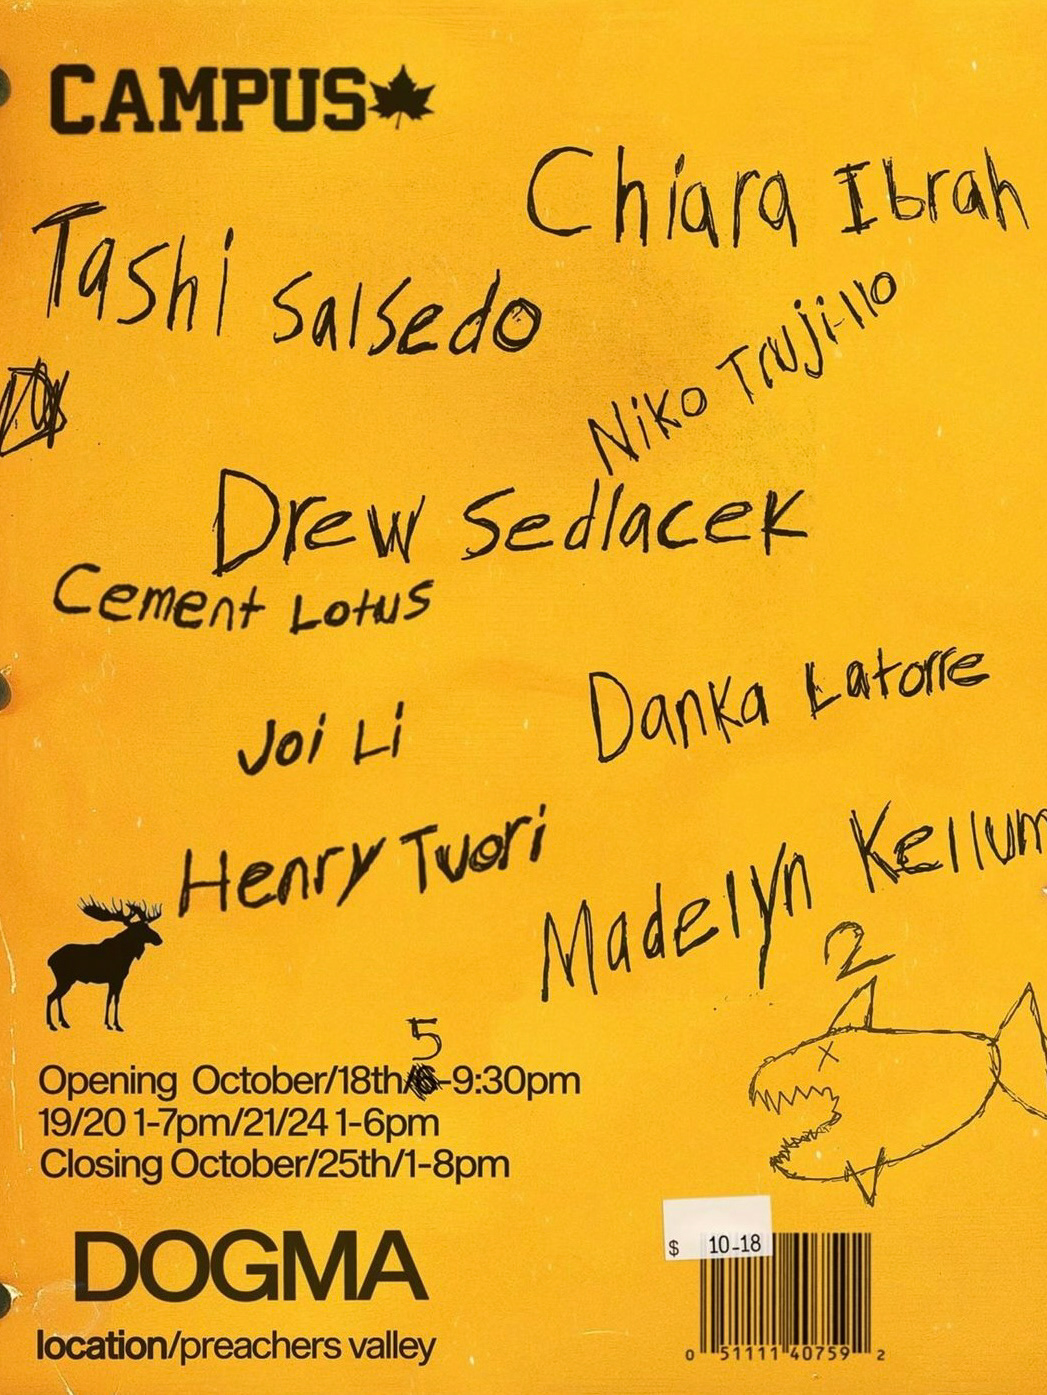 CAMPUS
Chiara Ibrah
Tashi Salsedo
Niko Trujillo
Drew Sedlacek
Cement Lotus
Danka Latorre
Joi Li
Henry Tuori
Madelyn Kellum
2
5
Opening October/18th/6-9:30pm
19/20 1-7pm/21/24 1-6pm
Closing October/25th/1-8pm
DOGMA
location/preachers valley
$ 10-18
0 51111 40759 2